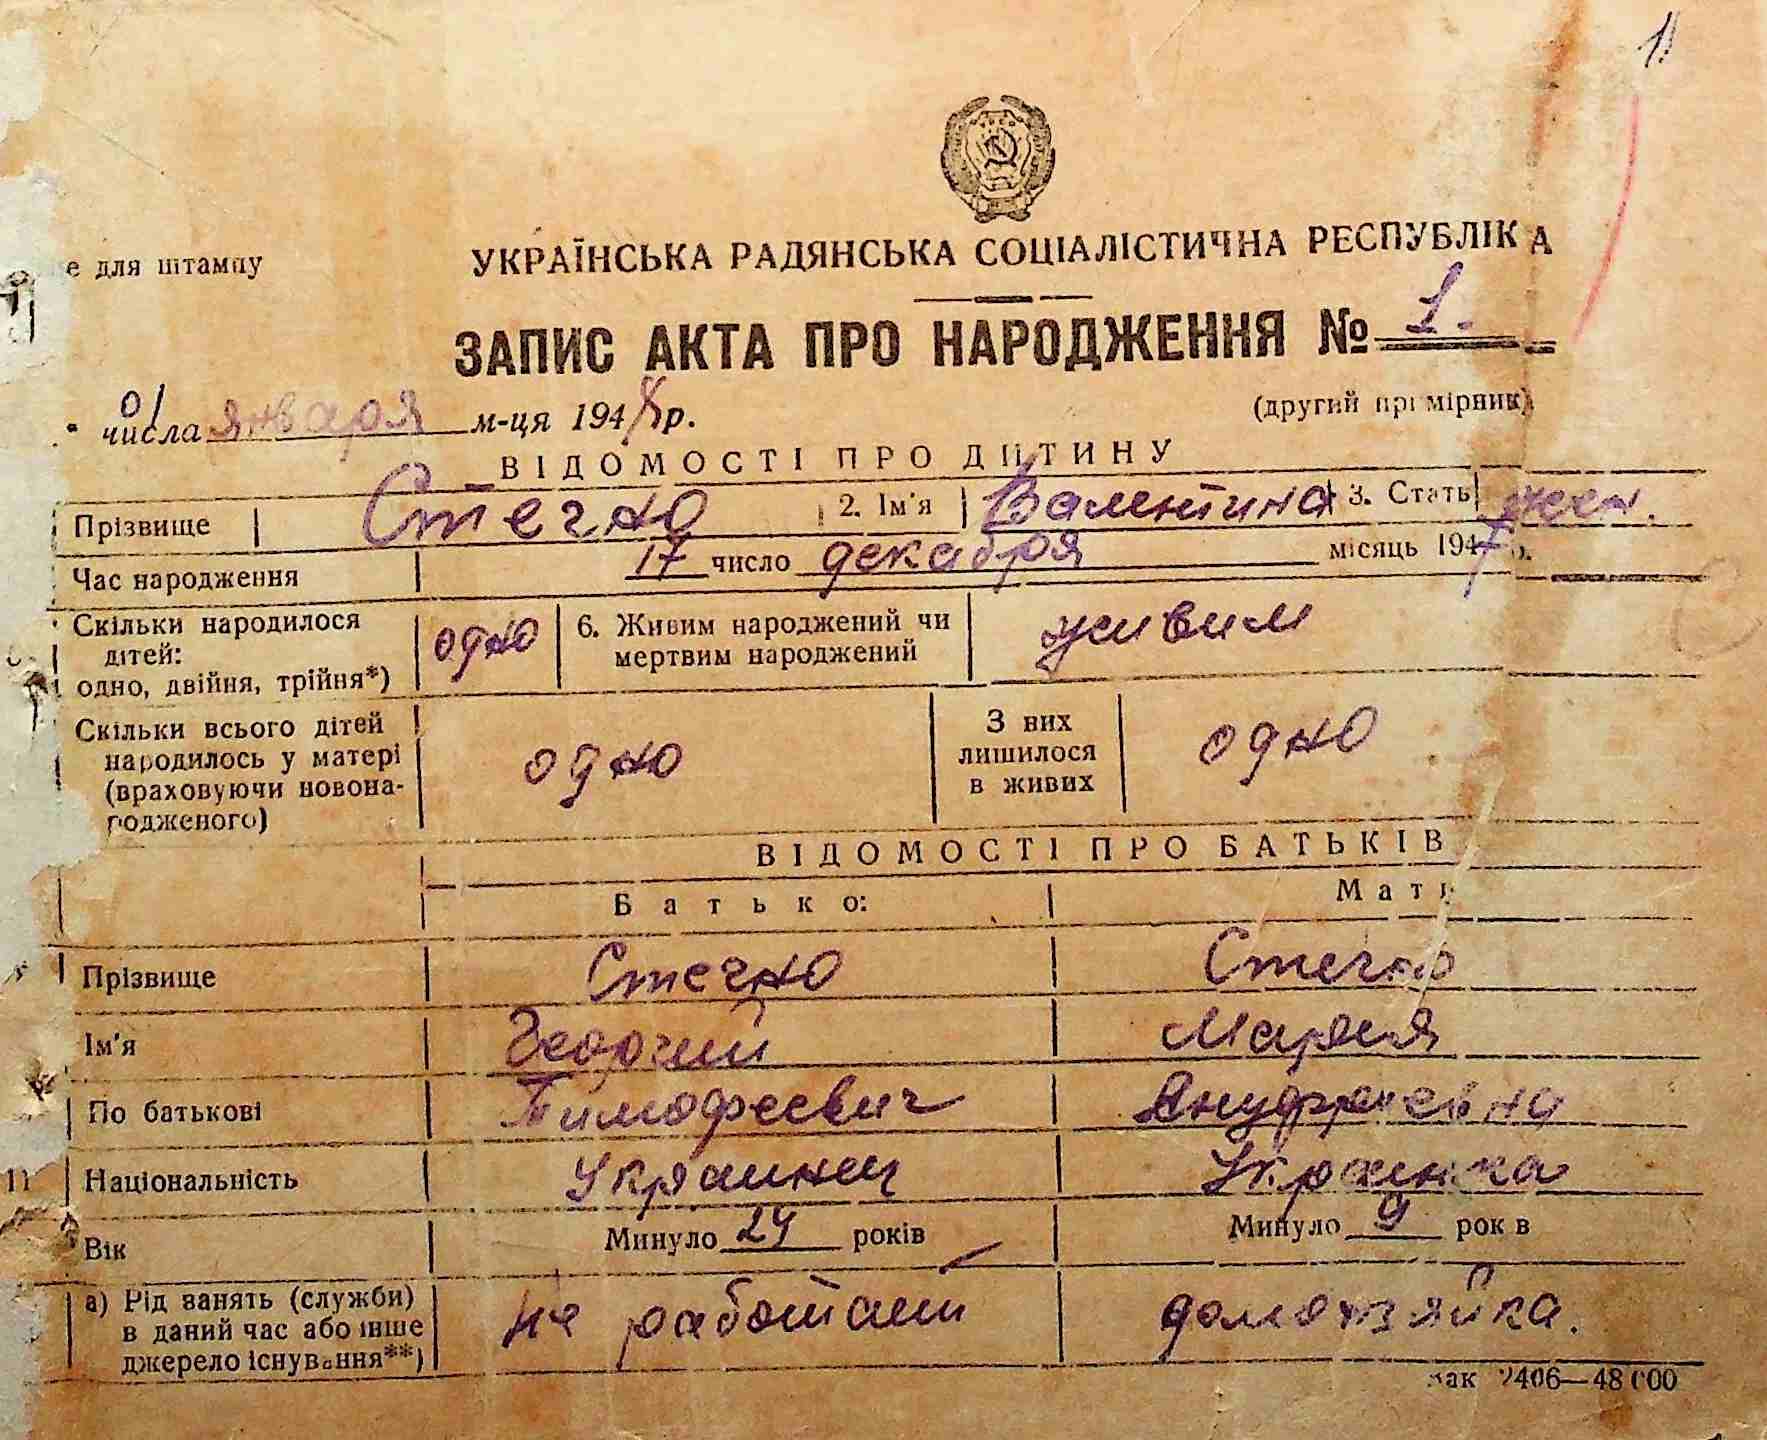 1
е для штампу
УКРАЇНСЬКА РАДЯНСЬКА СОЦІАЛІСТИЧНА РЕСПУБЛІКА
ЗАПИС АКТА ПРО НАРОДЖЕННЯ № 1.
01 числа января м-ця 1948 р.
(другий примірник)
ВІДОМОСТІ ПРО ДИТИНУ
Прізвище Стечно 2. Ім'я Валентина 3. Стать жен.
Час народження 17 число декабря місяць 1947 р.
Скільки народилося дітей: одно, двійня, трійня*) одно 6. Живим народжений чи мертвим народжений живим
Скільки всього дітей народилось у матері (враховуючи новонародженого) одно З них лишилося в живих одно
ВІДОМОСТІ ПРО БАТЬКІВ
Батько: Мати
Прізвище Стечно Стечно
Ім'я Георгий Мария
По батькові Тимофеевич
11 Національність Украинец Украинка
Вік Минуло 24 років Минуло 9 рок в
а) Рід занять (служби) в даний час або інше джерело існування**) не работает домохзяйка.
Зак 2406—48000